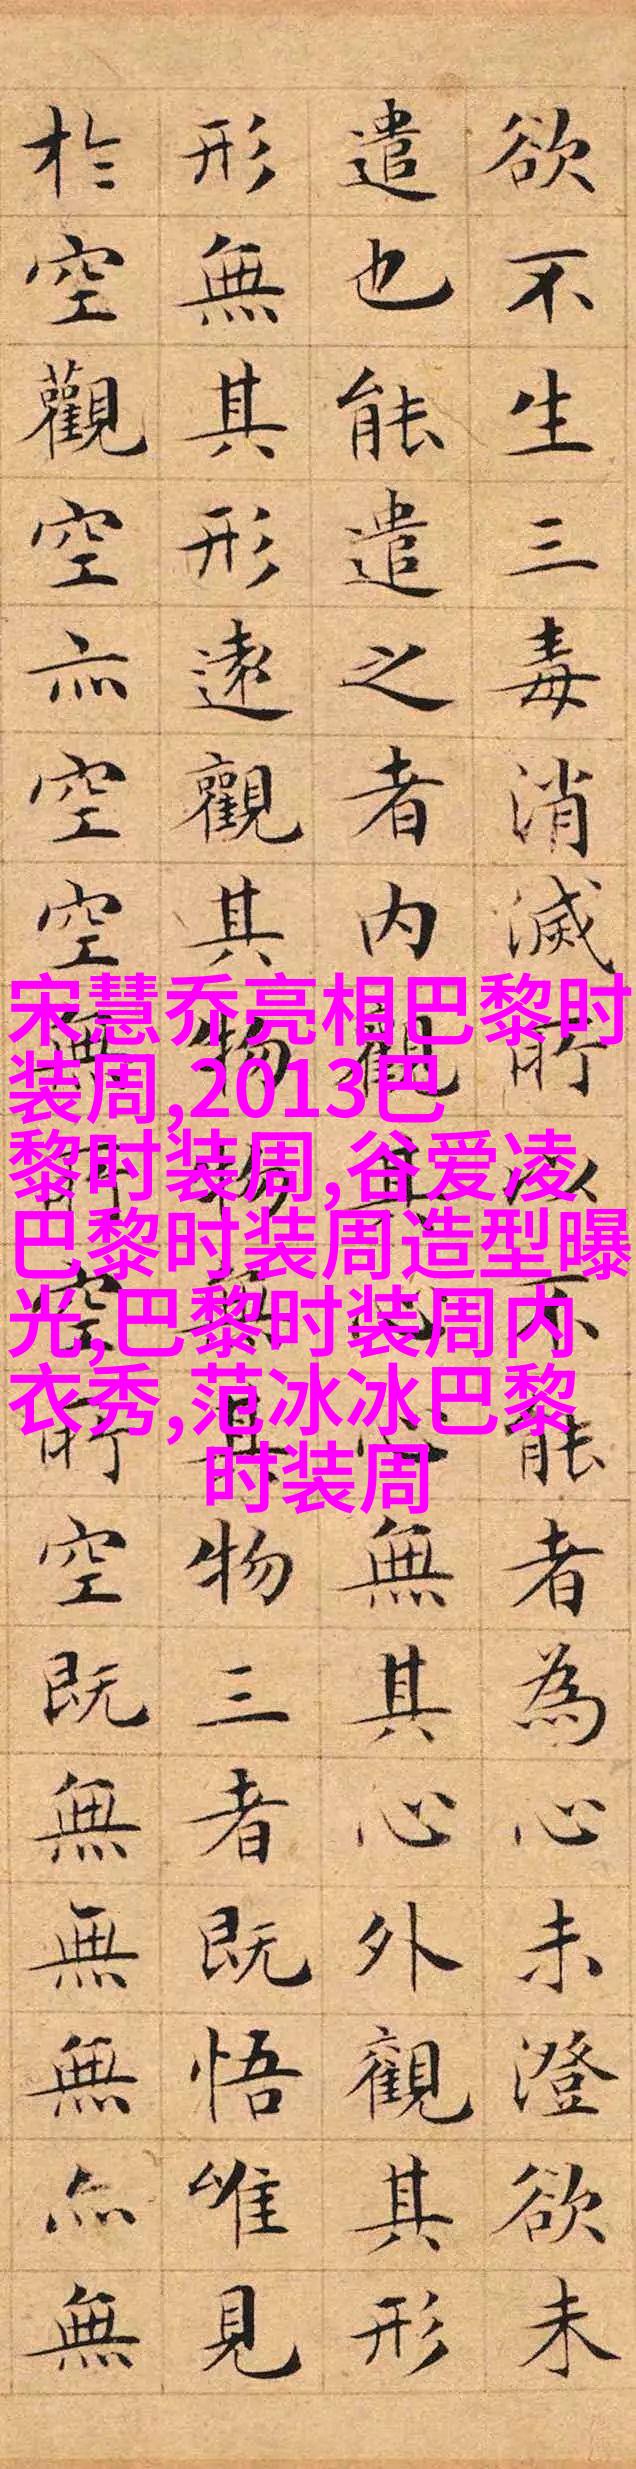 欲不生三毒消滅所以不能者為心未澄欲未
遣也能遣之者内觀其心心無其心外觀其形
形無其形遠觀其物物無其物三者既悟唯見
於空觀空亦空空無所空所空既無無無亦無
宋慧乔亮相巴黎时
装周,2013巴
黎时装周,谷爱凌
巴黎时装周造型曝
光,巴黎时装周内
衣秀,范冰冰巴黎
时装周